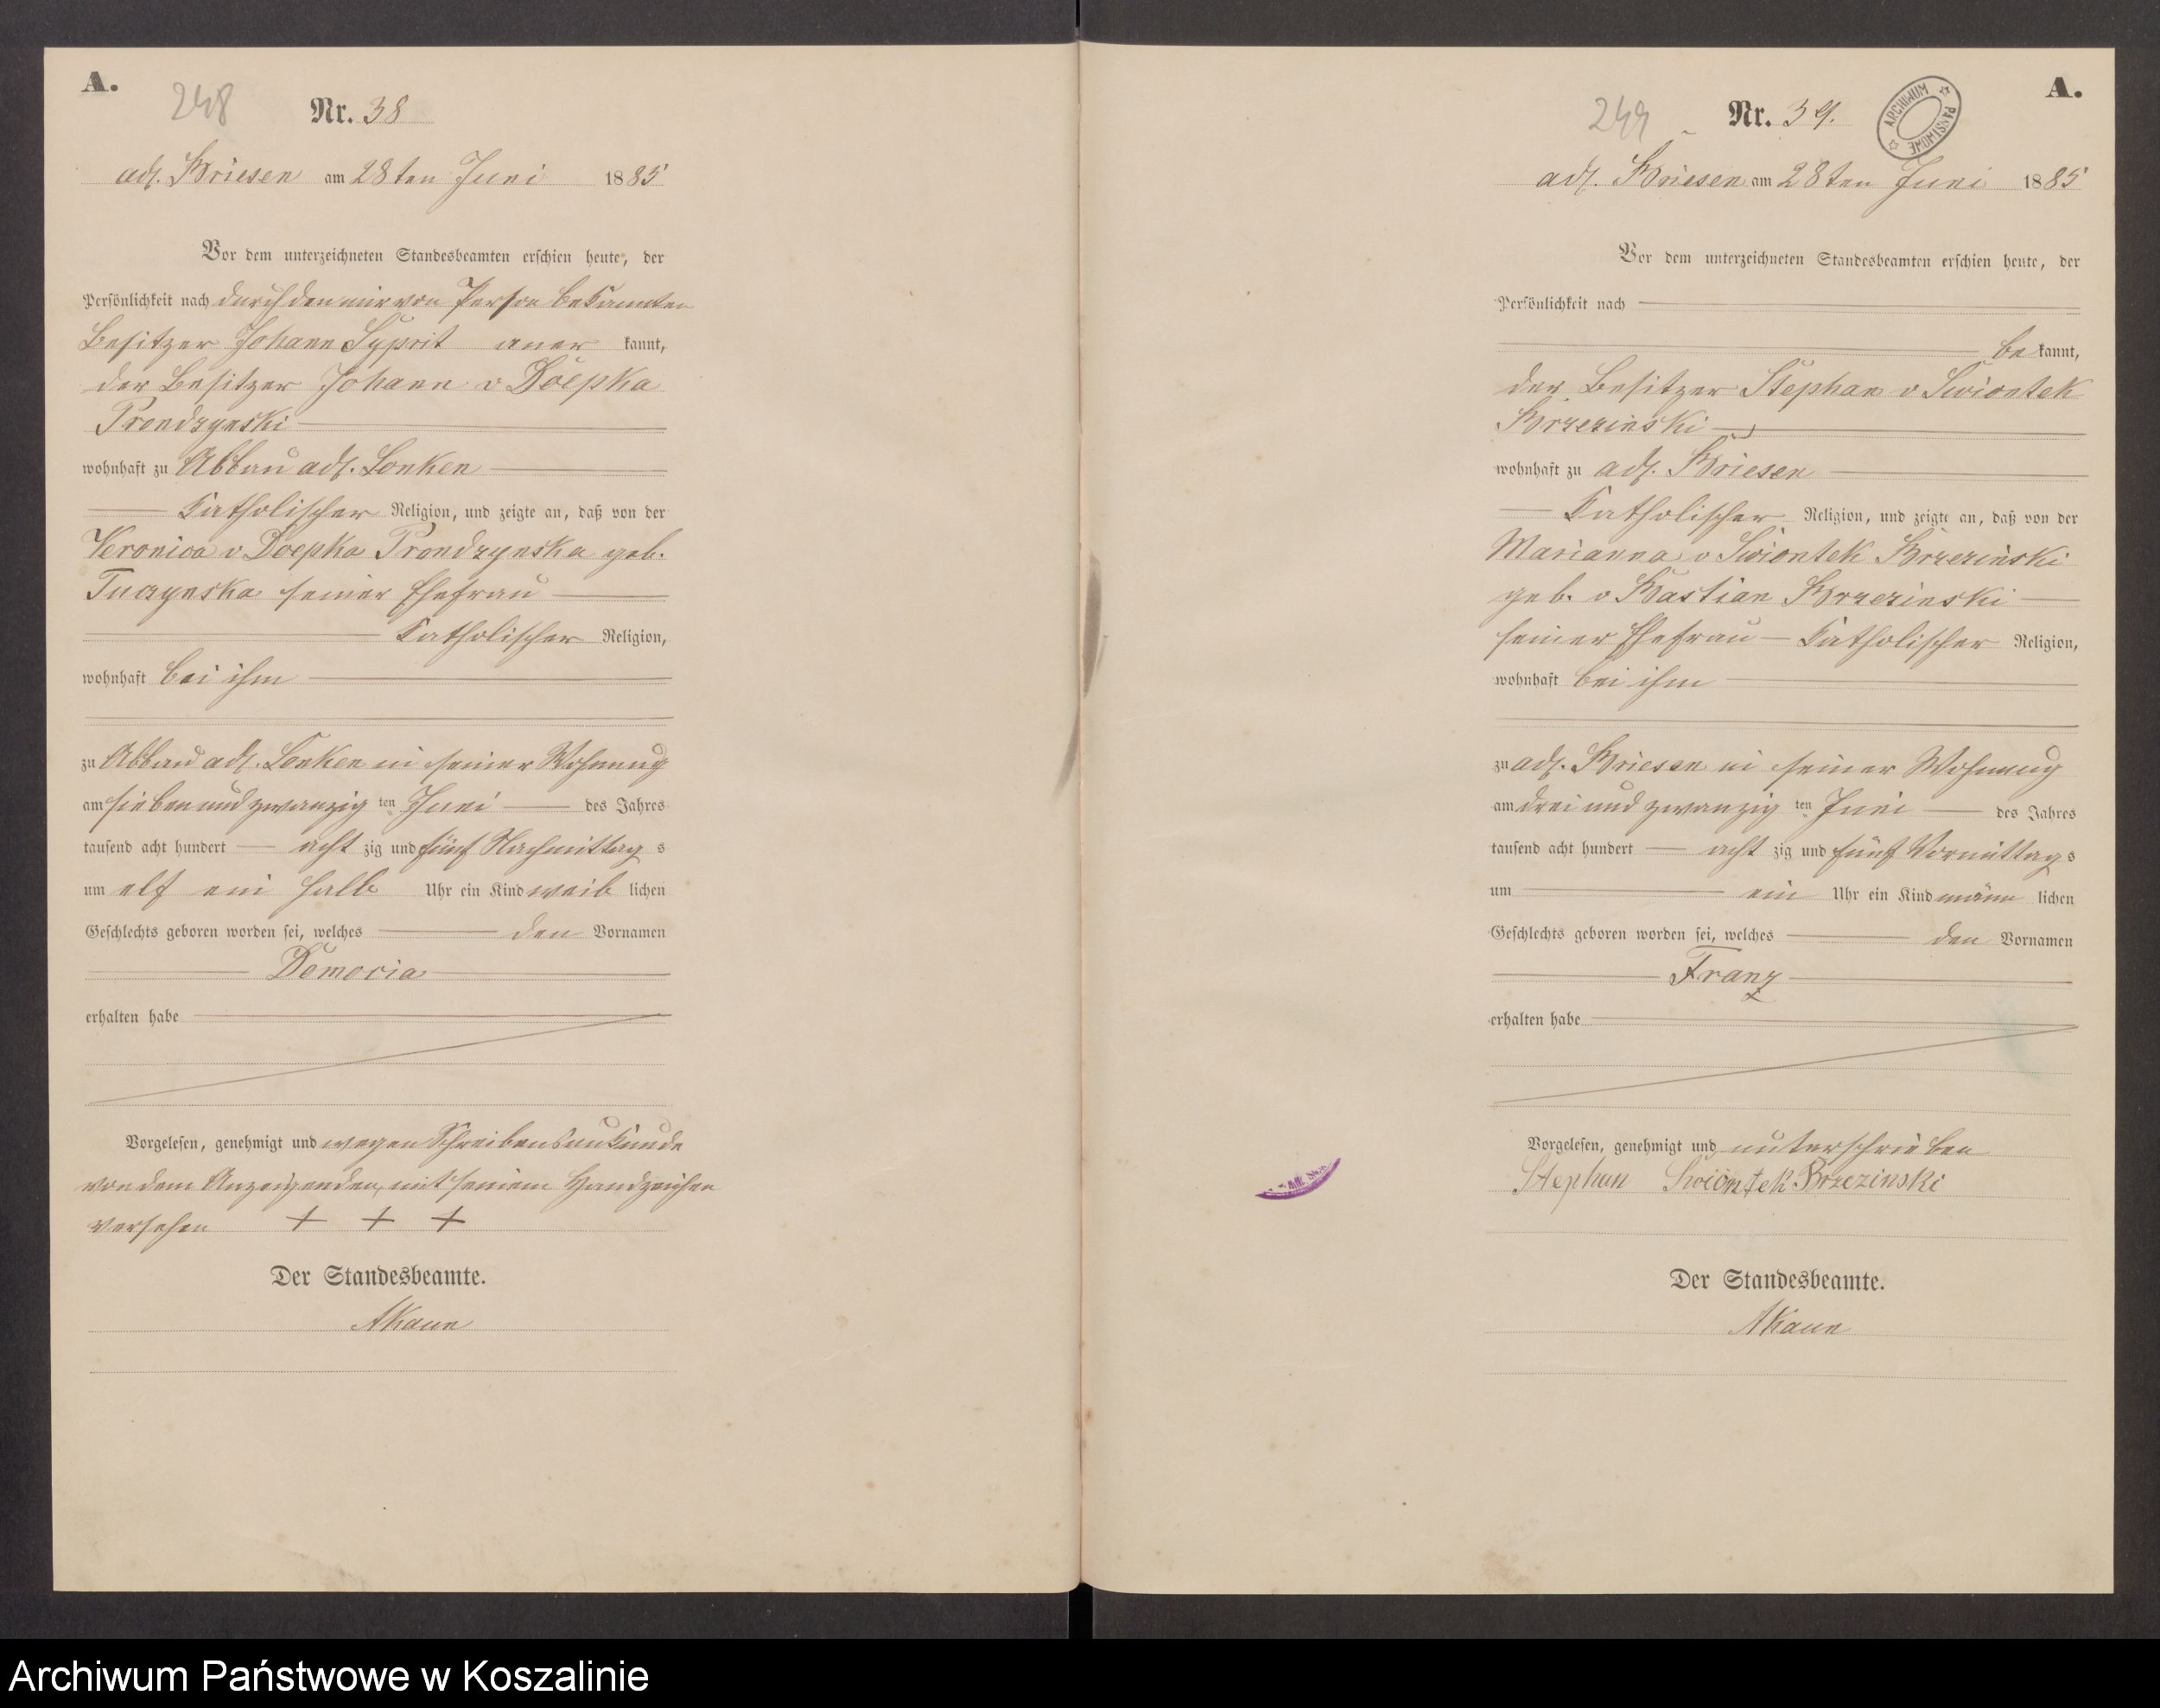 A.
248
Nr. 38
adl. Briesen am 28ten Juni 1885
Vor dem unterzeichneten Standesbeamten erschien heute, der
Persönlichkeit nach durch den mir von Person bekannten
Besitzer Johann Syprit aner kannt,
der Besitzer Johann v Doepka
Prondzynski
wohnhaft zu Abbau adl. Lonken
Katholischer Religion, und zeigte an, daß von der
Veronica v Doepka Prondzynska geb.
Tuczynska seiner Ehefrau
Katholischer Religion,
wohnhaft bei ihm
zu Abbau adl. Lonken in seiner Wohnung
am sieben und zwanzig ten Juni des Jahres
tausend acht hundert acht zig und fünf Nachmittag s
um elf ein halb Uhr ein Kind weib lichen
Geschlechts geboren worden sei, welches den Vornamen
Domocia
erhalten habe
Vorgelesen, genehmigt und wegen Schreibensunkunde
von dem Anzeigenden, mit seinem Handzeichen
versehen + + +
Der Standesbeamte.
AKaun
A.
249
Nr. 39.
ARCHIWUM PAŃSTWOWE
adl. Briesen am 28ten Juni 1885
Vor dem unterzeichneten Standesbeamten erschien heute, der
Persönlichkeit nach
be kannt,
der Besitzer Stephan v Swiontek
Brzezinski
wohnhaft zu adl. Briesen
Katholischer Religion, und zeigte an, daß von der
Marianna v Swiontek Brzezinski
geb. v Bastian Brzezinski
seiner Ehefrau Katholischer Religion,
wohnhaft bei ihm
zu adl. Briesen in seiner Wohnung
am drei und zwanzig ten Juni des Jahres
tausend acht hundert acht zig und fünf Vormittag s
um ein Uhr ein Kind männ lichen
Geschlechts geboren worden sei, welches den Vornamen
Franz
erhalten habe
Vorgelesen, genehmigt und unterschrieben
Stephan Swiontek Brzezinski
Der Standesbeamte.
AKaun
Archiwum Państwowe w Koszalinie